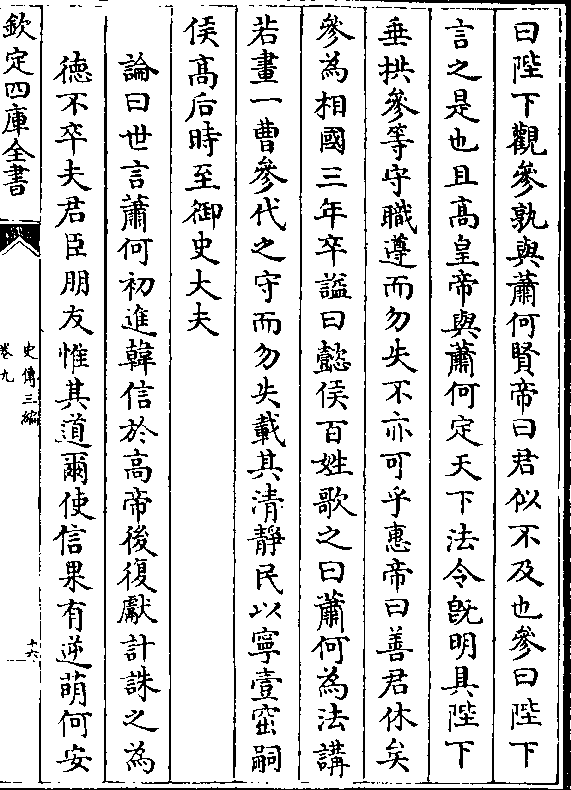 曰陛下觀參孰與蕭何賢帝曰君似不及也參曰陛下
言之是也且高皇帝與蕭何定天下法令旣明具陛下
垂拱參等守職遵而勿失不亦可乎惠帝曰善君休矣
參為相國三年卒諡曰懿侯百姓歌之曰蕭何為法講
若畫一曹參代之守而勿失載其清靜民以寧壹窋嗣
侯髙后時至御史大夫
論曰世言蕭何初進韓信於高帝後復獻計誅之為
德不卒夫君臣朋友惟其道爾使信果有逆萌何安
欽定四庫全書
史傳三編
卷九
十六